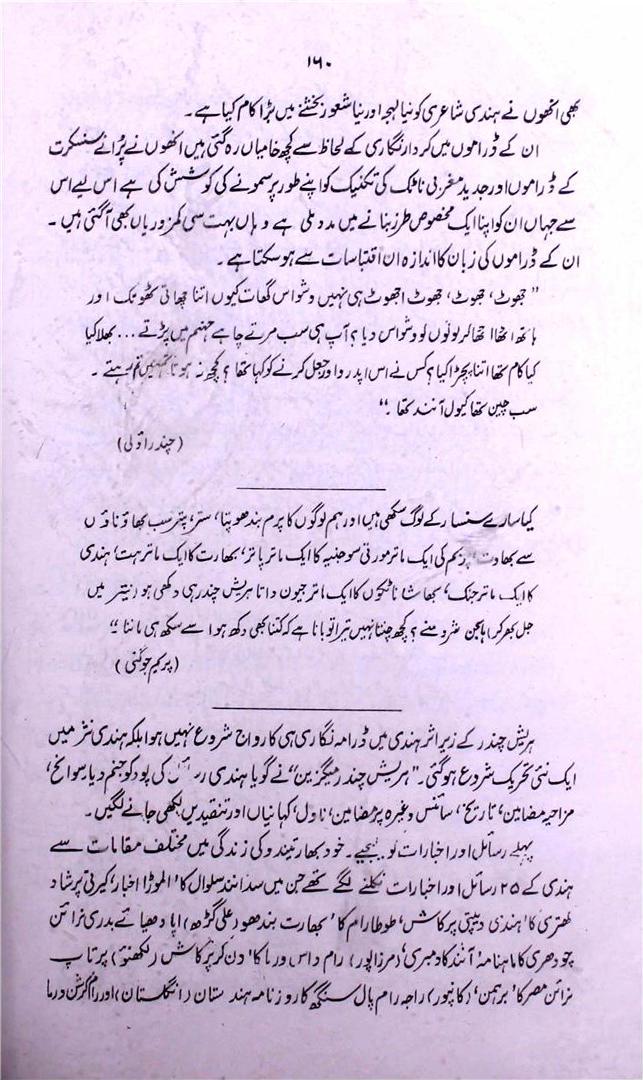 ۱۶۰
بھی انھوں نے ہندی شاعری کو نیا لہجہ اور نیا شعور بخشنے میں بڑا کام کیا ہے۔
ان کے ڈراموں میں کردار نگاری کے لحاظ سے کچھ خامیاں رہ گئی ہیں انھوں نے پُرانے سنسکرت
کے ڈراموں اور جدید مغربی ناٹک کی تکنیک کو اپنے طور پر سمونے کی کوشش کی ہے اس لیے اس
سے جہاں ان کو اپنا ایک مخصوص طرز بنانے میں مدد ملی ہے وہاں بہت سی کمزوریاں بھی آگئی ہیں۔
ان کے ڈراموں کی زبان کا اندازہ ان اقتباسات سے ہوسکتا ہے۔
"جھوٹ، جھوٹ، جھوٹ اجھوٹ ہی نہیں وشواس گھات کیوں اتنا چھاتی ٹھونک اور
ہاتھ اٹھا اٹھا کر لوگوں کو وشواس دیا؟ آپ ہی سب مرتے چاہے جہنم میں پڑتے ... بھلا کیا
کیا کام تھا اتنا پچڑا کیا؟ کس نے اس اپدروا ور جعل کرنے کو کہا تھا؟ کچھ نہ ہوتا تمہیں تم رہتے۔
سب چین تھا کیول آنند تھا۔"
(چندراولی)
کیا سارے سنسار کے لوگ سکھی ہیں اور ہم لوگوں کا پرم بندھو پتا، متر، پتر سب بھاوناؤں
سے بھاوت پریم کی ایک ماتر مورتی سوجنیہ کا ایک ماتر پاتر، بھارت کا ایک ماتر ہت، ہندی
کا ایک ماتر جنک، بھاشا ناٹکوں کا ایک ماتر جیون داتا ہریش چندر ہی دکھی ہو، نیتر میں
جل بھر کر، ہا سجن شرومنے؟ کچھ چنتا نہیں تیرا تو بانا ہے کہ کتنا بھی دکھ ہو اسے سکھ ہی ماننا۔"
(پریم جوگنی)
ہریش چندر کے زیر اثر ہندی میں ڈرامہ نگاری ہی کا رواج شروع نہیں ہوا بلکہ ہندی نثر میں
ایک نئی تحریک شروع ہوگئی۔ "ہریش چندر میگزین" نے گویا ہندی رسائل کی پود کو جنم دیا، سوانح،
مزاحیہ مضامین، تاریخ، سائنس وغیرہ پر مضامین، ناول، کہانیاں اور تنقیدیں لکھی جانے لگیں۔
پہلے رسائل اور اخبارات کو لیجیے۔ خود بھارتیندو کی زندگی میں مختلف مقامات سے
ہندی کے ۲۵ رسائل اور اخبارات نکلنے لگے تھے جن میں سدانند سلوال کا 'الموڑا اخبار' کیرتی پرشاد
کھتری کا 'ہندی دیپتی پرکاش، طوطا رام کا 'بھارت بندھو' (علی گڑھ) اپادھیائے بدری نرائن
چودھری کا ماہنامہ آنند کادمبری، (مرزاپور) رام داس ورما کا 'دن کر پرکاش (لکھنؤ) پرتاپ
نرائن مصر کا 'برہمن، (کانپور) راجہ رام پال سنگھ کا روزنامہ ہندستان (انگلستان) اور رام کرشن ورما